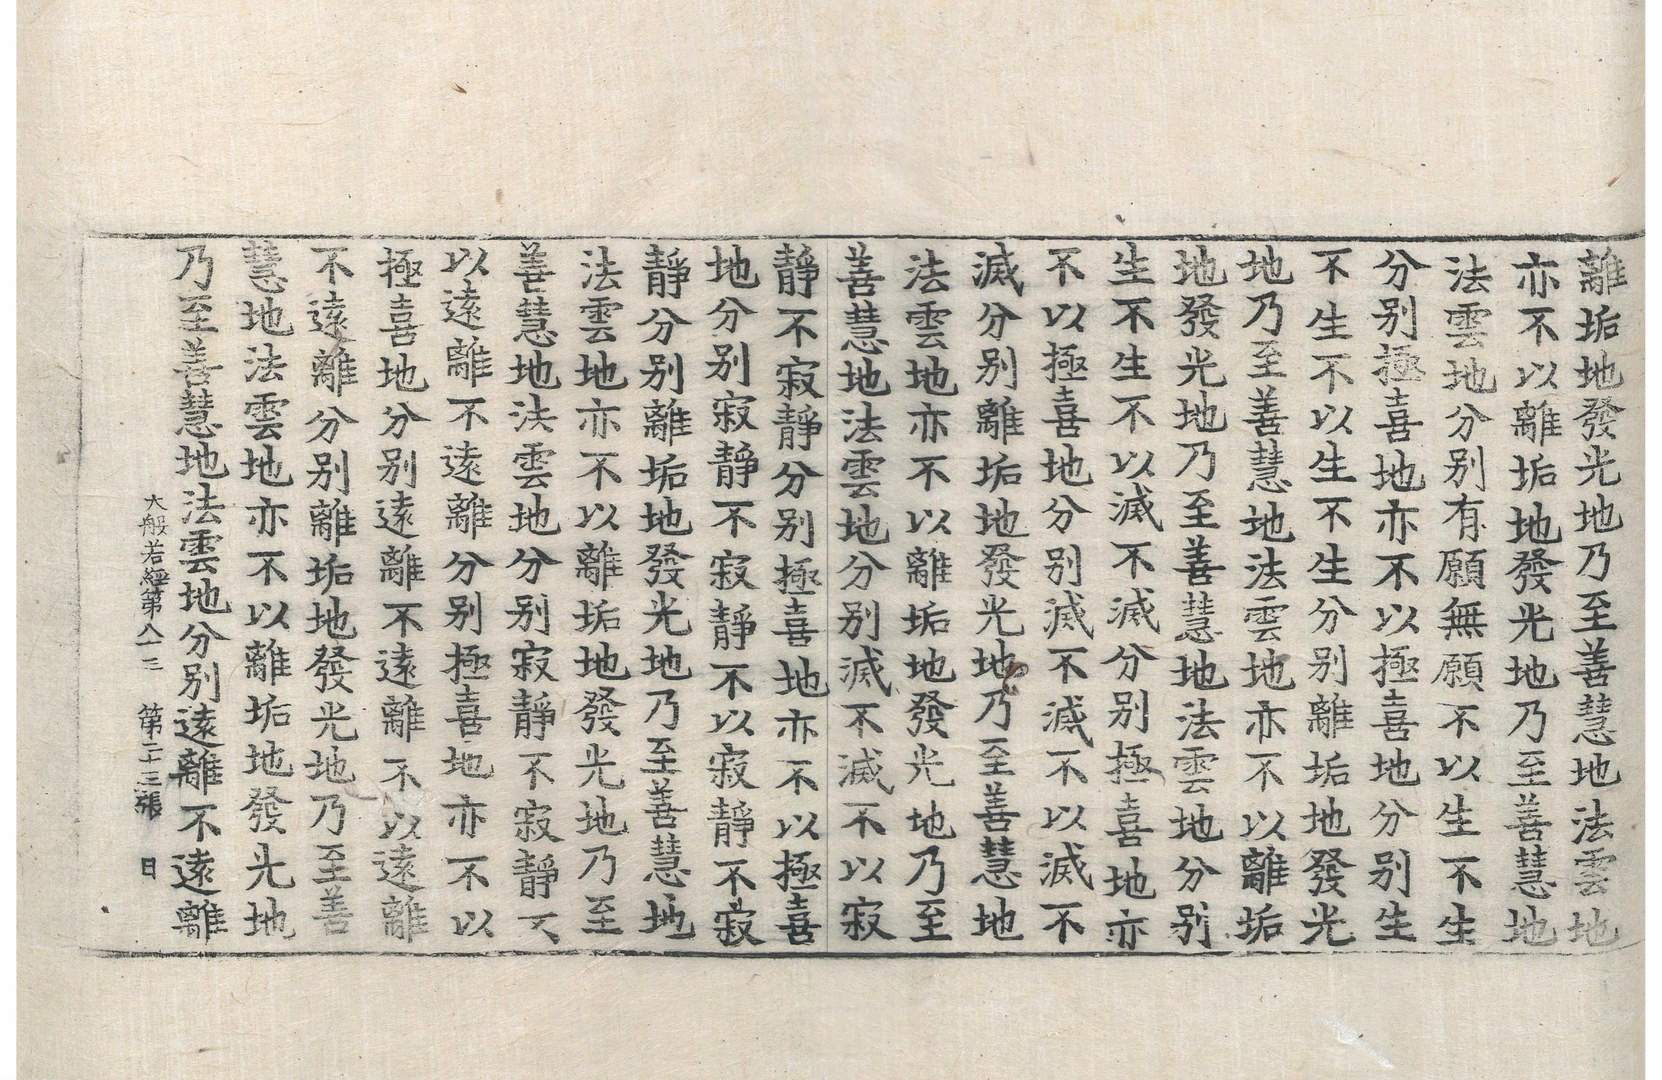 離垢地發光地乃至善慧地法雲地
亦不以離垢地發光地乃至善慧地
法雲地分别有願無願不以生不生
分别極喜地亦不以極喜地分别生
不生不以生不生分别離垢地發光
地乃至善慧地法雲地亦不以離垢
地發光地乃至善慧地法雲地分别
生不生不以滅不滅分别極喜地亦
不以極喜地分别滅不滅不以滅不
滅分别離垢地發光地乃至善慧地
法雲地亦不以離垢地發光地乃至
善慧地法雲地分别滅不滅不以寂
靜不寂靜分别極喜地亦不以極喜
地分别寂靜不寂靜不以寂靜不寂
靜分别離垢地發光地乃至善慧地
法雲地亦不以離垢地發光地乃至
善慧地法雲地分别寂靜不寂靜不
以遠離不遠離分别極喜地亦不以
極喜地分别遠離不遠離不以遠離
不遠離分别離垢地發光地乃至善
慧地法雲地亦不以離垢地發光地
乃至善慧地法雲地分别遠離不遠離
大般若經第八十三 第二十三張 日